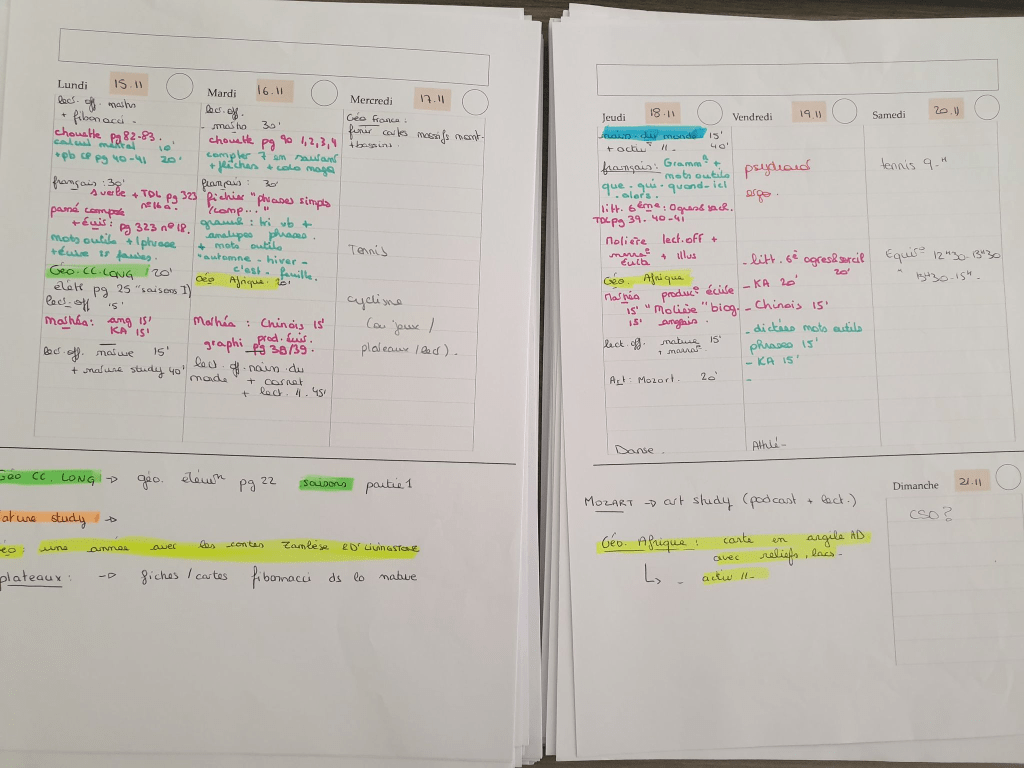 Lundi 15.11
lect. off. maths
+ fibonacci -
chouette pg 82-83.
calcul mental 10'
+ pb CP pg 40-41 20'
français : 30'
s verbe + TDL pg 323
n° 16 a.
passé composé
+ Écris : pg 323 n° 18.
mots outils + 1 phrase
+ écrire
Géo. CC. LONG 20'
pg 25 "saisons I)
lect. off 15'
Mathéa : ang 15'
KA 15'
lect. off. nature 15'
+ nature study 40'
Mardi 16.11
lect. off.
- maths 30'
chouette pg 90 1,2,3,4
compter 7 en sautant
+ flèches + colo magq
français : 30'
fichier "phrases simples
/comp..."
gramm : tri vb +
analyses phrases.
+ mots outils
"automne - hiver -
c'est - feuille.
Géo Afrique : 20'
Mathéa : Chinois 15'
prod. écris.
graphi pg 38/39.
lect. off. nain du
monde + carnet
+ lect. 11. 45'
Mercredi 17.11
Géo France :
finir cartes massifs mont-
+ bassins.
Tennis
cyclisme
(ou jeux /
plateaux / lect) .
Géo CC. LONG → géo. élém pg 22 saisons partie 1
nature study →
géo : une année avec les contes Zambèse & D' Livingstone
plateaux : → fiches / cartes fibonacci ds la nature
Jeudi 18.11
nain du monde 15'
+ activ 11 - 40'
français : Gramm +
mots outils
que - qui - quand - ici
- alors .
litt. 6ème : Ogres & sorc.
TDL pg 39 - 40 - 41
Molière lect. off +
+ illus
Géo. Afrique.
Mathéa product écrite
15' "Molière" biog.
15' anglais.
lect. off. nature 15'
+ narra
Art : Mozart. 20'
Danse .
Vendredi 19.11
- litt. 6e ogres & sorcil
20'
- KA 20'
- Chinois 15'
- dictées mots outils
phrases 15'
- KA 15'
-
Athlé -
Samedi 20.11
tennis 9-11
Equi 12H30 - 13H30
" 13H30 - 15H -
MOZART → art study (podcast + lect.)
Géo. Afrique : carte en argile AD
avec reliefs, lacs -
- activ 11 -
Dimanche 21.11
CSO ?